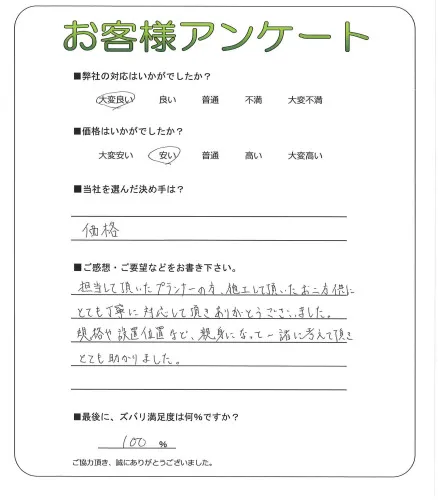 お客様アンケート
■弊社の対応はいかがでしたか？
大変良い 良い 普通 不満 大変不満
■価格はいかがでしたか？
大変安い 安い 普通 高い 大変高い
■当社を選んだ決め手は？
価格
■ご感想・ご要望などをお書き下さい。
担当して頂いたプランナーの方、施工して頂いたお二方供に
とても丁寧に対応して頂きありがとうございました。
規格や設置位置など、親身になって一諸に考えて頂き
とても助かりました。
■最後に、ズバリ満足度は何％ですか？
100 %
ご協力頂き、誠にありがとうございました。